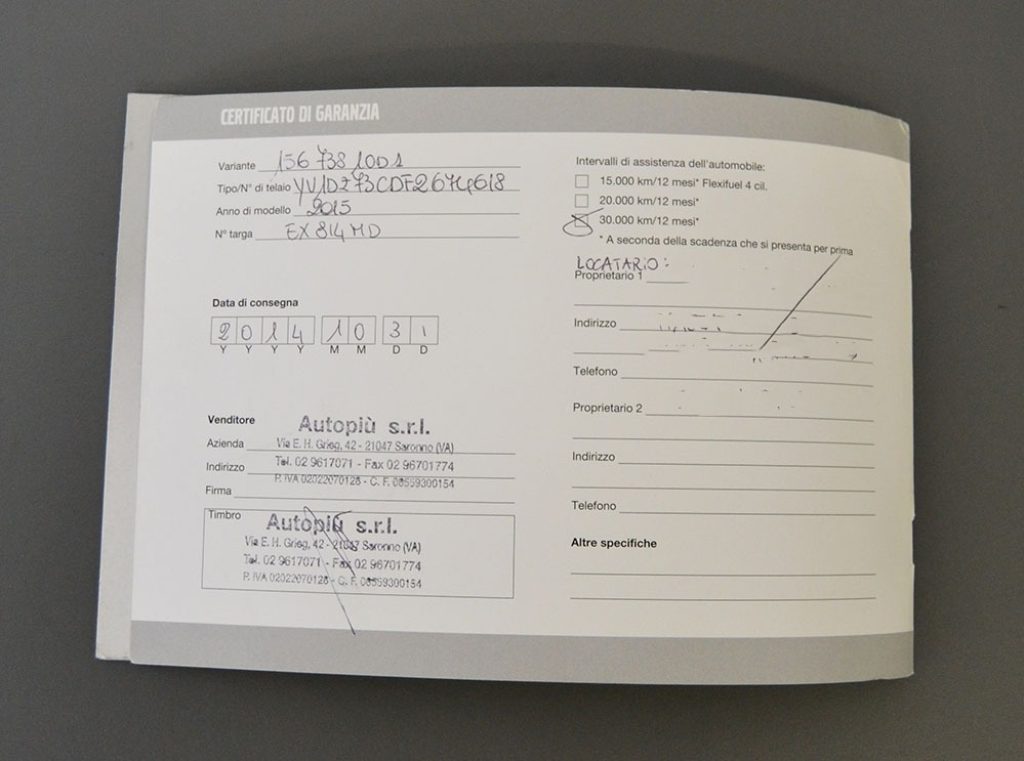 CERTIFICATO DI GARANZIA
Variante 156 738 10D1
Tipo/N° di telaio YV1DZ73CDF2674618
Anno di modello 2015
N° targa EX814MD
Data di consegna
2014 10 31
Y Y Y Y M M D D
Venditore
Autopiù s.r.l.
Azienda Via E. H. Grieg, 42 - 21047 Saronno (VA)
Indirizzo Tel. 02 9617071 - Fax 02 96701774
P. IVA 02022070128 - C. F. 08559300154
Firma
Timbro
Autopiù s.r.l.
Via E. H. Grieg, 42 - 21047 Saronno (VA)
Tel. 02 9617071 - Fax 02 96701774
P. IVA 02022070128 - C. F. 08559300154
Intervalli di assistenza dell'automobile:
15.000 km/12 mesi* Flexifuel 4 cil.
20.000 km/12 mesi*
30.000 km/12 mesi*
* A seconda della scadenza che si presenta per prima
LOCATARIO:
Proprietario 1
Indirizzo
Telefono
Proprietario 2
Indirizzo
Telefono
Altre specifiche